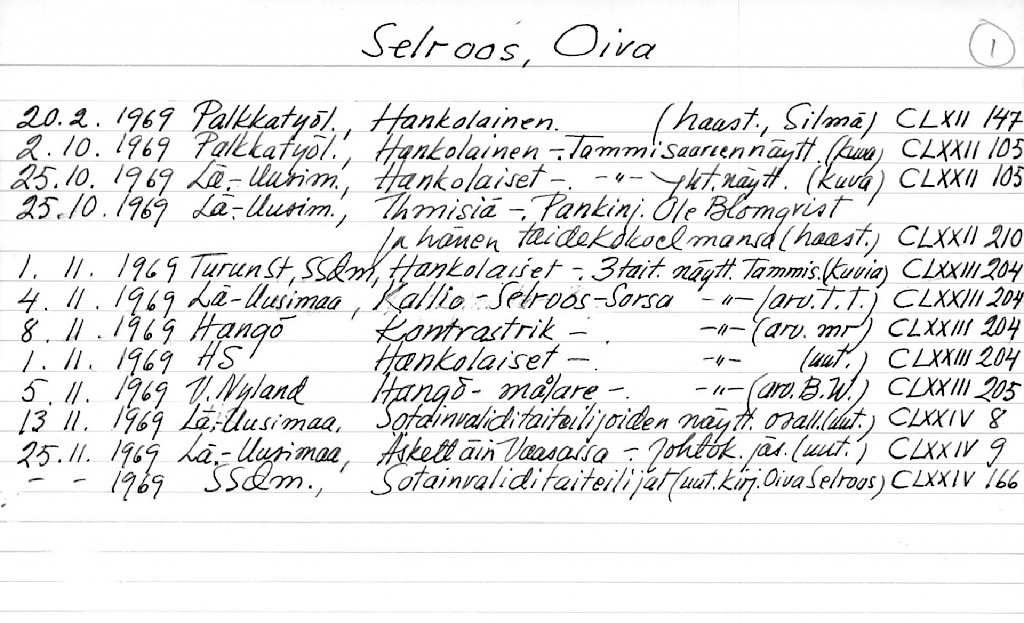 Selroos, Oiva
1
20.2. 1969 Palkkatyöl., Hankolainen. (haast., Silmä) CLXII 147
2.10. 1969 Palkkatyöl., Hankolainen -. Tammisaaren näytt. (kuva) CLXXII 105
25.10. 1969 Lä.-Uusim., Hankolaiset -. -"- yht. näytt. (kuva) CLXXII 105
25.10. 1969 Lä.-Uusim., Ihmisiä -. Pankinj. Ole Blomqvist
ja hänen taidekokoelmansa (haast.) CLXXII 210
1. 11. 1969 Turun St, SSdm, Hankolaiset -. 3 tait. näytt. Tammis. (kuvia) CLXXIII 204
4. 11. 1969 Lä-Uusimaa, Kallio-Selroos-Sorsa -"- (arv. T.T.) CLXXIII 204
8. 11. 1969 Hangö Kontrastrik -. -"- (arv. mr) CLXXIII 204
1. 11. 1969 HS Hankolaiset -. -"- (uut.) CLXXIII 204
5. 11. 1969 V. Nyland Hangö-målare -. -"- (arv. B.W.) CLXXIII 205
13 11. 1969 Lä.-Uusimaa, Sotainvaliditaiteilijoiden näytt. osall. (uut.) CLXXIV 8
25.11. 1969 Lä.-Uusimaa, Äskettäin Vaasassa -. Johtok. jäs. (uut.) CLXXIV 9
- - 1969 SSdm., Sotainvaliditaiteilijat (uut. kirj. Oiva Selroos) CLXXIV 166